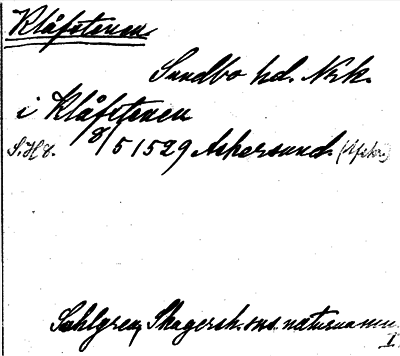 Klåfstenen
Sundbo hd. Nrk.
i Klåfstenen
S.H 8. 8/5 1529 Askersund (Afskr.)
Sahlgren, Skagersh. sns. naturnamn
I